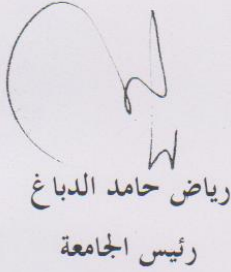 رياض حامد الدباغ
رئيس الجامعة